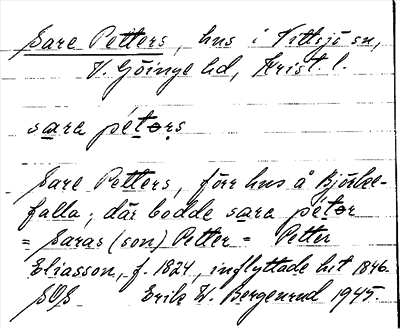 Sare Petters, hus i Vittsjö sn,
V. Göinge hd, Krist. l.
sara péters
Sare Petters, förr hus å Björke-
falla; där bodde sara péter
= Saras (son) Petter = Petter
Eliasson, f. 1824, inflyttade hit 1846.
SOS Erik W. Bergenrud 1945.